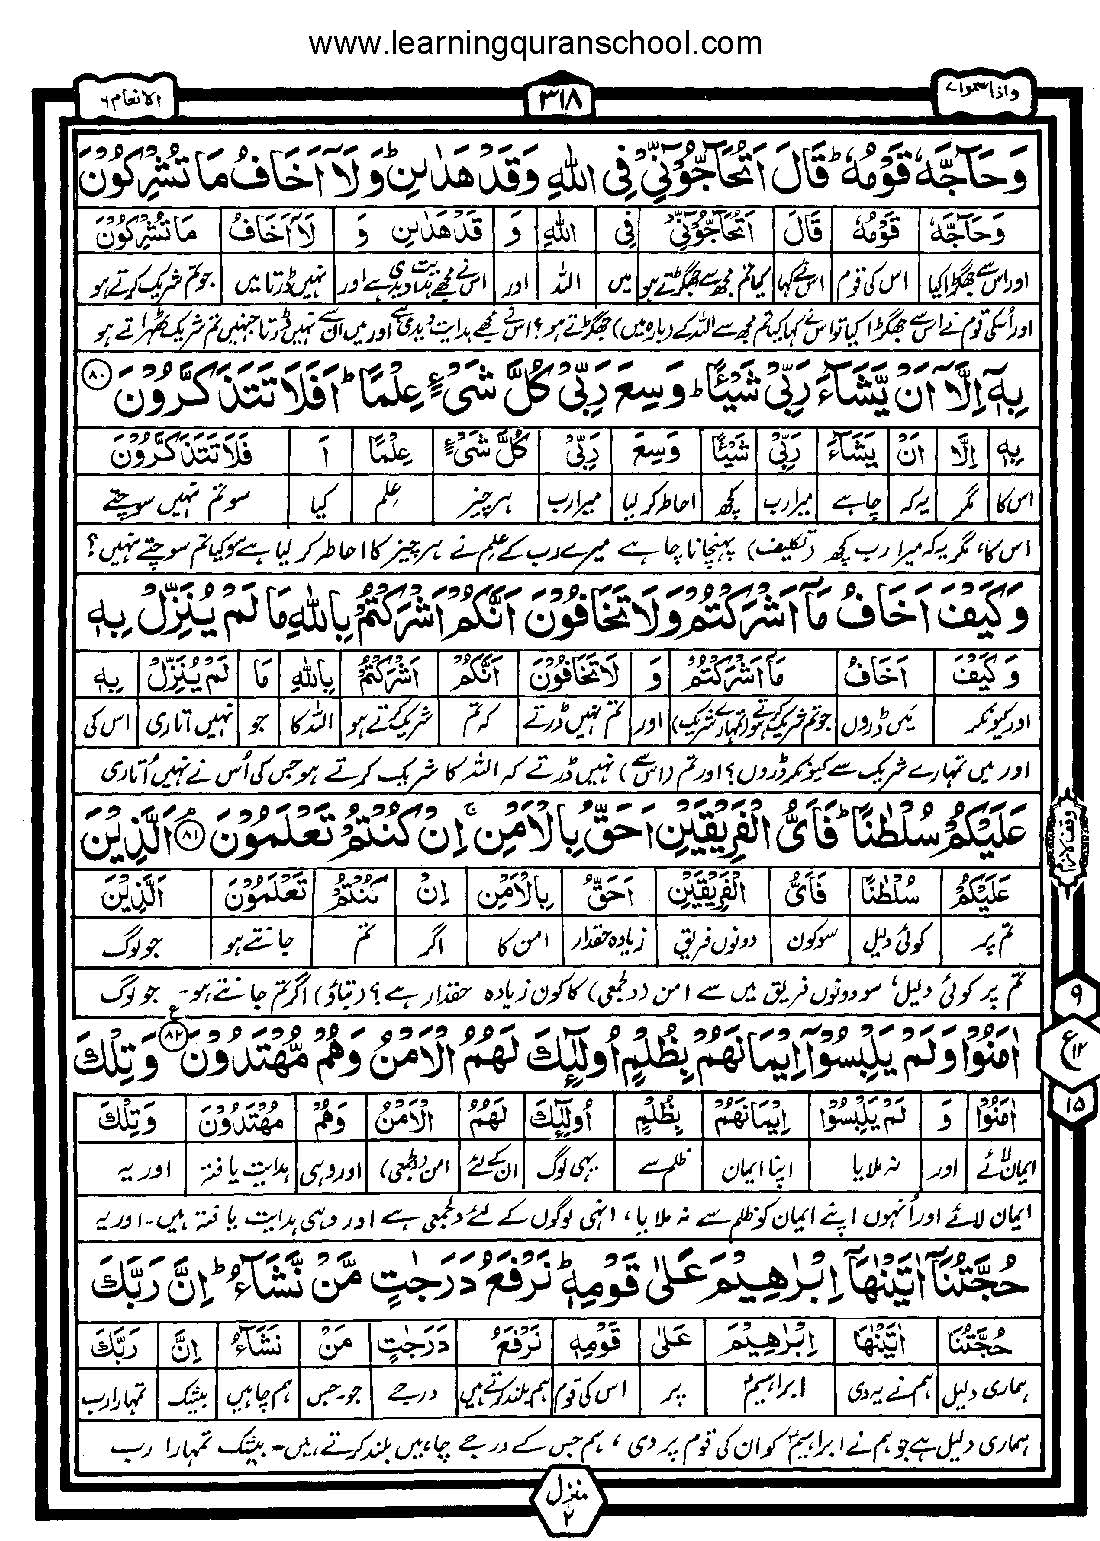 www.learningquranschool.com
واذا سمعوا ۷
۳۱۸
الانعام ۶
وَحَآجَّهٗ قَوْمُهٗ ؕ قَالَ اَتُحَآجُّوْٓنِّیْ فِی اللّٰهِ وَقَدْ هَدٰىنِ ؕ وَلَاۤ اَخَافُ مَا تُشْرِكُوْنَ
وَحَآجَّهٗ قَوْمُهٗ قَالَ اَتُحَآجُّوْٓنِّیْ فِی اللّٰهِ وَ قَدْ هَدٰىنِ وَ لَاۤ اَخَافُ مَا تُشْرِكُوْنَ
اور اس سے جھگڑا کیا اس کی قوم اس نے کہا کیا تم مجھ سے جھگڑتے ہو میں اللہ اور اس نے مجھے ہدایت دیدی ہے اور نہیں ڈرتا میں جو تم شریک کرتے ہو
اور اُسکی قوم نے اس سے جھگڑا کیا تو اس نے کہا کیا تم مجھ سے اللہ کے (بارہ میں) جھگڑتے ہو؟ اس نے مجھے ہدایت دیدی ہے اور میں ان سے نہیں ڈرتا جنہیں تم شریک ٹھہراتے ہو
بِهٖۤ اِلَّاۤ اَنْ یَّشَآءَ رَبِّیْ شَیْـًٔا ؕ وَسِعَ رَبِّیْ كُلَّ شَیْءٍ عِلْمًا ؕ اَفَلَا تَتَذَكَّرُوْنَ ۸۰
بِهٖۤ اِلَّا اَنْ یَّشَآءَ رَبِّیْ شَیْـًٔا وَسِعَ رَبِّیْ كُلَّ شَیْءٍ عِلْمًا اَ فَلَا تَتَذَكَّرُوْنَ
اس کا مگر یہ کہ چاہے میرا رب کچھ احاطہ کر لیا میرا رب ہر چیز علم کیا سو تم نہیں سوچتے
اس کا، مگر یہ کہ میرا رب کچھ (تکلیف) پہنچانا چاہے میرے رب کے علم نے ہر چیز کا احاطہ کر لیا ہے سو کیا تم سوچتے نہیں؟
وَكَیْفَ اَخَافُ مَاۤ اَشْرَكْتُمْ وَلَا تَخَافُوْنَ اَنَّكُمْ اَشْرَكْتُمْ بِاللّٰهِ مَا لَمْ یُنَزِّلْ بِهٖ
وَكَیْفَ اَخَافُ مَاۤ اَشْرَكْتُمْ وَ لَا تَخَافُوْنَ اَنَّكُمْ اَشْرَكْتُمْ بِاللّٰهِ مَا لَمْ یُنَزِّلْ بِهٖ
اور کیونکر میں ڈروں جو تم شریک کرتے ہو (تمہارے شریک) اور تم نہیں ڈرتے کہ تم شریک کرتے ہو اللہ کا جو نہیں اتاری اس کی
اور میں تمہارے شریک سے کیونکر ڈروں؟ اور تم (اس سے) نہیں ڈرتے کہ اللہ کا شریک کرتے ہو جس کی اُس نے نہیں اُتاری
عَلَیْكُمْ سُلْطٰنًا ؕ فَاَیُّ الْفَرِیْقَیْنِ اَحَقُّ بِالْاَمْنِ ۚ اِنْ كُنْتُمْ تَعْلَمُوْنَ ۘ ۸۱ اَلَّذِیْنَ
وقف لازم
عَلَیْكُمْ سُلْطٰنًا فَاَیُّ الْفَرِیْقَیْنِ اَحَقُّ بِالْاَمْنِ اِنْ كُنْتُمْ تَعْلَمُوْنَ اَلَّذِیْنَ
تم پر کوئی دلیل سو کون دونوں فریق زیادہ حقدار امن کا اگر تم جانتے ہو جو لوگ
تم پر کوئی دلیل، سو دونوں فریق میں سے امن (دلجمعی) کا کون زیادہ حقدار ہے؟ (بتاؤ) اگر تم جانتے ہو۔ جو لوگ
۹
ع ۱۲
۱۵
اٰمَنُوْا وَلَمْ یَلْبِسُوْۤا اِیْمَانَهُمْ بِظُلْمٍ اُولٰٓئِكَ لَهُمُ الْاَمْنُ وَهُمْ مُّهْتَدُوْنَ ۸۲ ع وَتِلْكَ
اٰمَنُوْا وَ لَمْ یَلْبِسُوْۤا اِیْمَانَهُمْ بِظُلْمٍ اُولٰٓئِكَ لَهُمُ الْاَمْنُ وَهُمْ مُهْتَدُوْنَ وَتِلْكَ
ایمان لائے اور نہ ملایا اپنا ایمان ظلم سے یہی لوگ ان کے لئے امن (دلجمعی) اور وہی ہدایت یافتہ اور یہ
ایمان لائے اور اُنہوں اپنے ایمان کو ظلم سے نہ ملایا، انہی لوگوں کے لئے دلجمعی ہے اور وہی ہدایت یافتہ ہیں۔ اور یہ
حُجَّتُنَاۤ اٰتَیْنٰهَاۤ اِبْرٰهِیْمَ عَلٰی قَوْمِهٖ ؕ نَرْفَعُ دَرَجٰتٍ مَّنْ نَّشَآءُ ؕ اِنَّ رَبَّكَ
حُجَّتُنَا اٰتَیْنٰهَا اِبْرٰهِیْمَ عَلٰی قَوْمِهٖ نَرْفَعُ دَرَجٰتٍ مَنْ نَشَآءُ اِنَّ رَبَّكَ
ہماری دلیل ہم نے یہ دی ابراہیمؑ پر اس کی قوم ہم بلند کرتے ہیں درجے جو۔جس ہم چاہیں بیشک تمہارا رب
ہماری دلیل ہے جو ہم نے ابراہیمؑ کو ان کی قوم پر دی، ہم جس کے درجے چاہیں بلند کرتے ہیں۔ بیشک تمہارا رب
منزل ۲